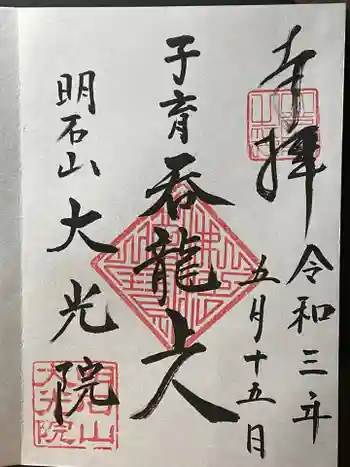 奉拝
令和三年
五月十五日
子育呑龍上人
明石山
大光院